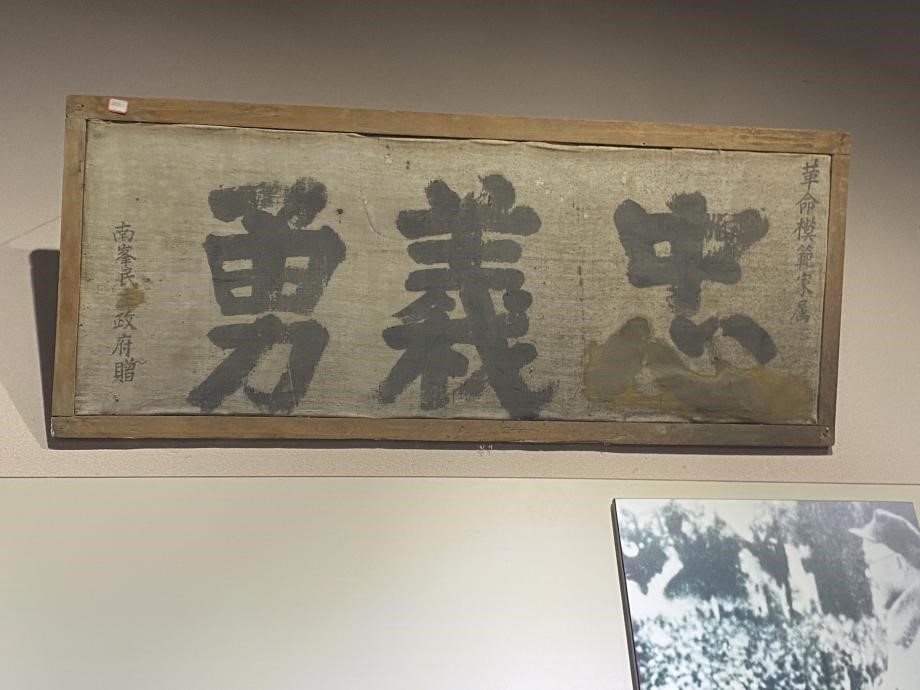 革命模範家属
忠義勇
南峯民政府贈